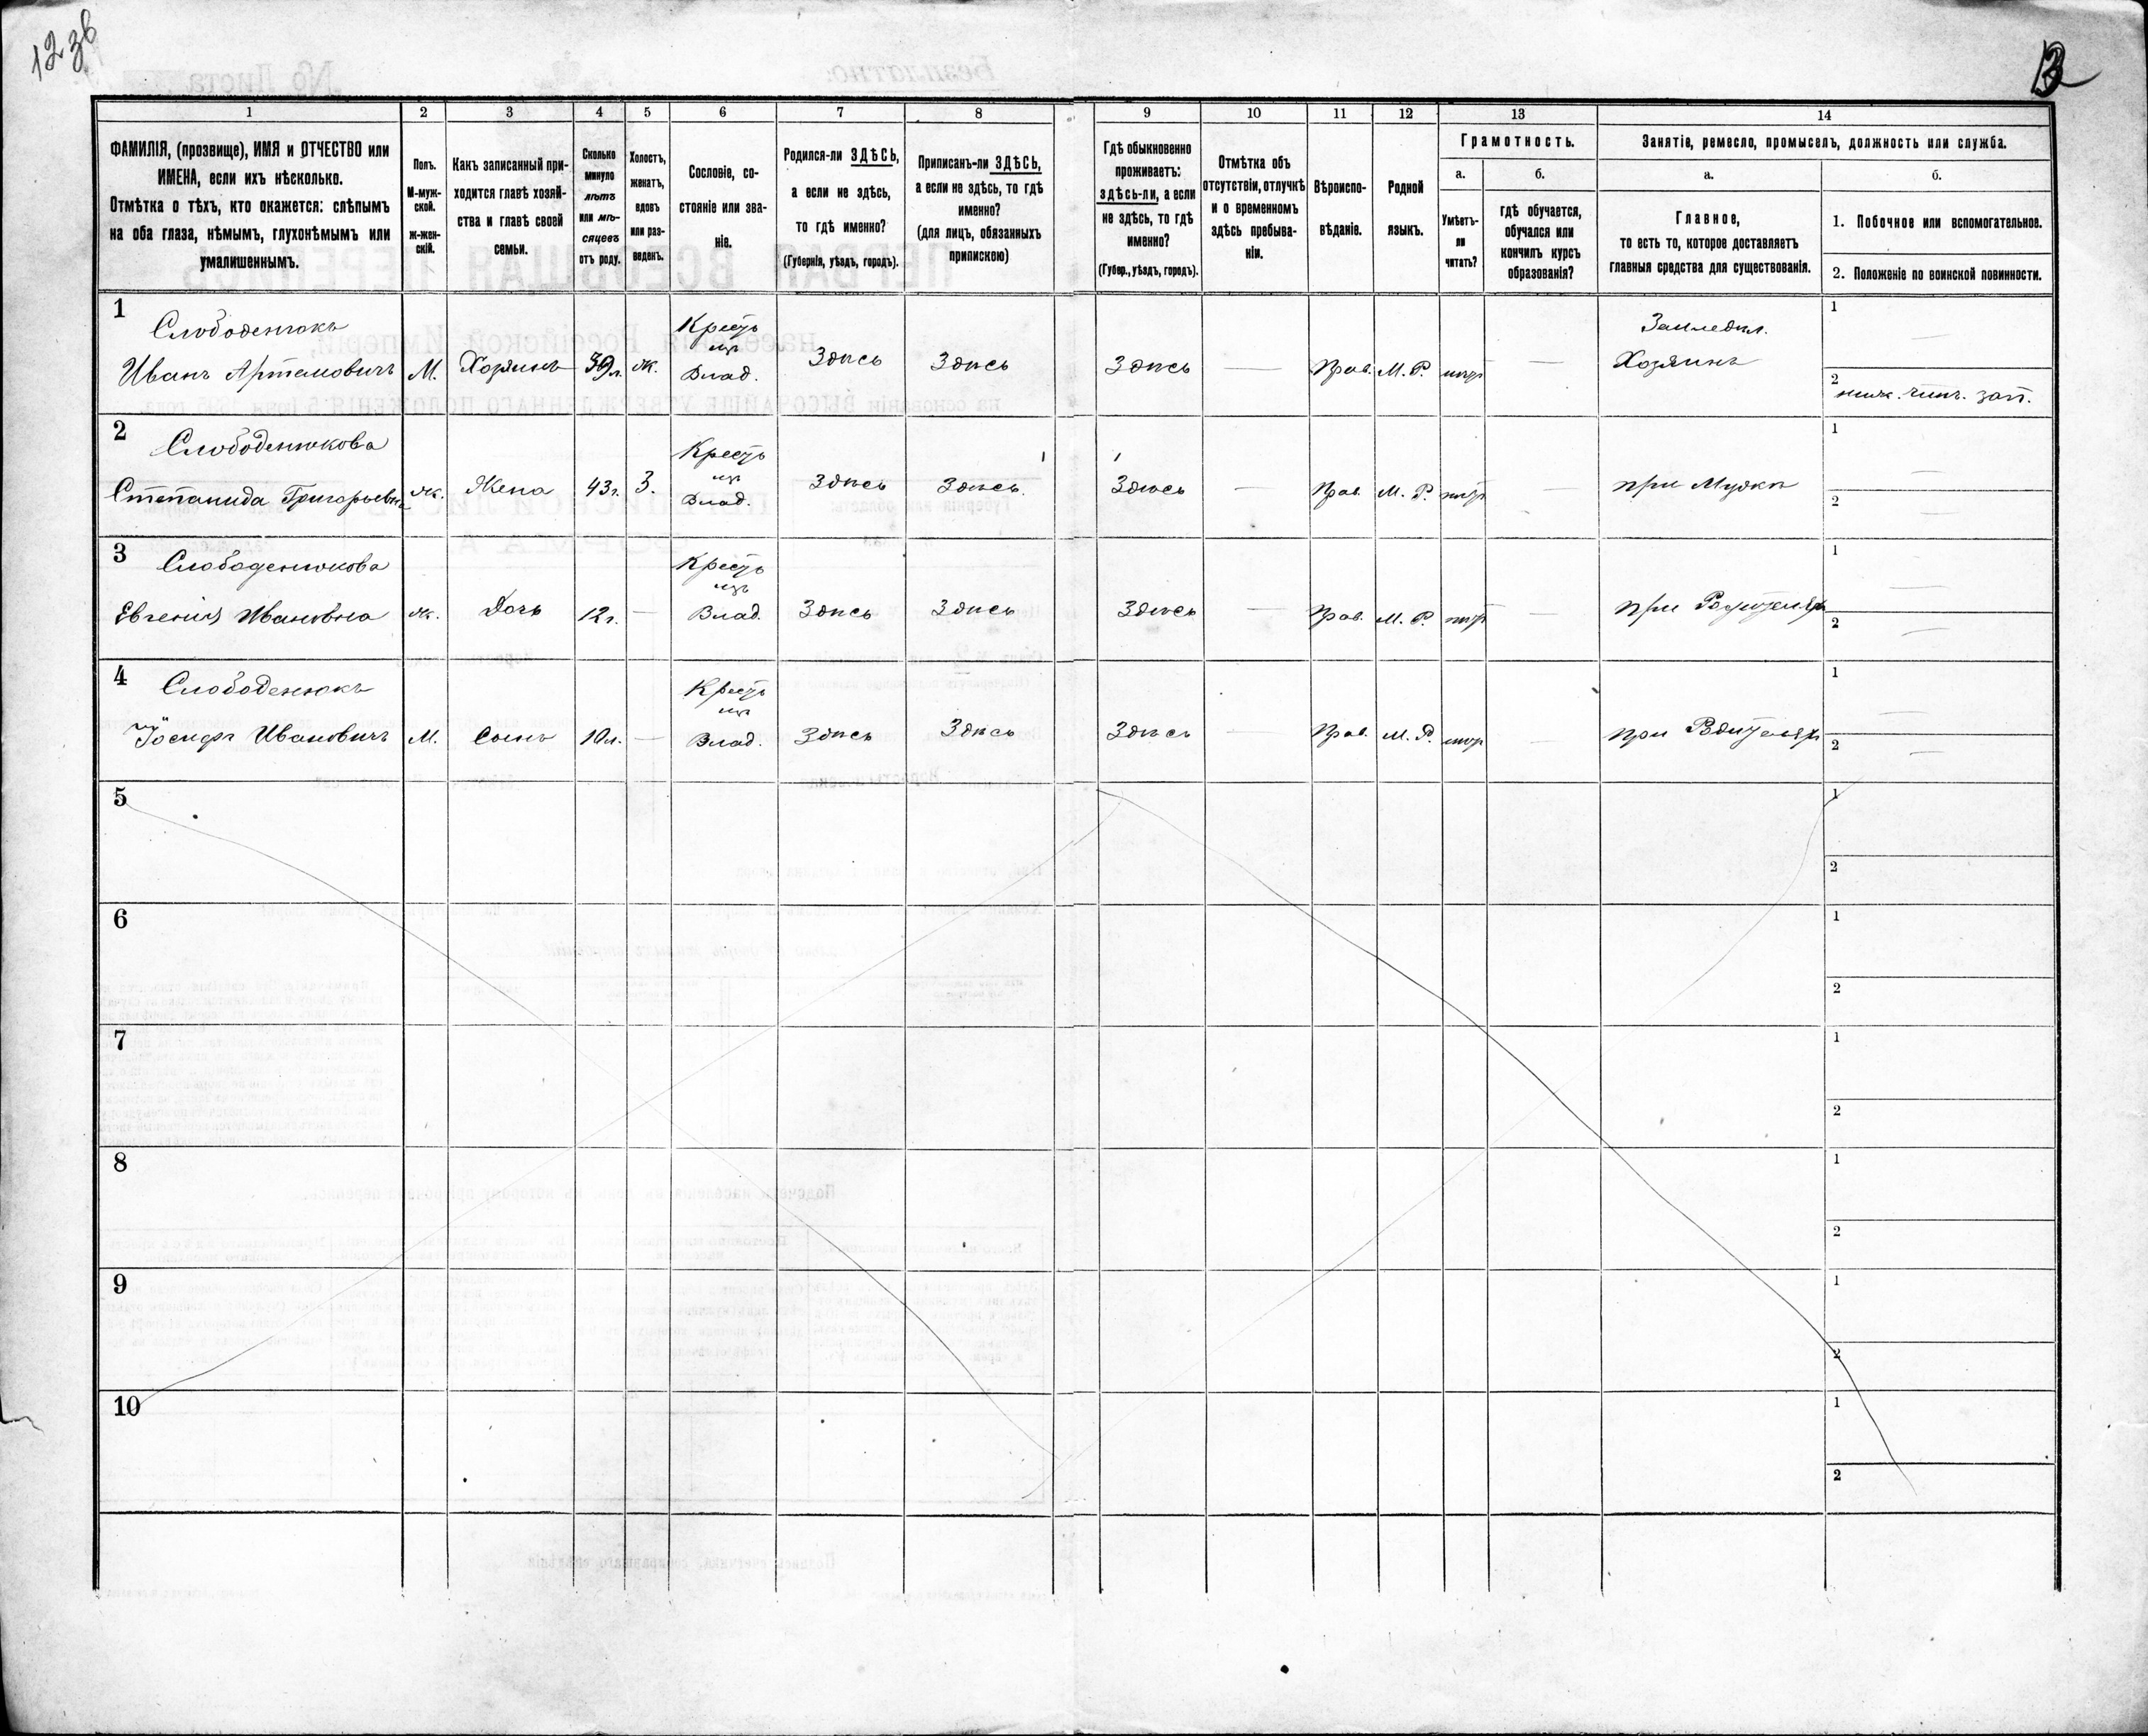 12 зв
13
1 2 3 4 5 6 7 8 9 10 11 12 13 14
ФАМИЛІЯ, (прозвище), ИМЯ и ОТЧЕСТВО или
ИМЕНА, если ихъ нѣсколько.
Отмѣтка о тѣхъ, кто окажется: слѣпымъ
на оба глаза, нѣмымъ, глухонѣмымъ или
умалишеннымъ.
Полъ.
М-муж-
ской.
Ж-жен-
скій.
Какъ записанный при-
ходится главѣ хозяй-
ства и главѣ своей
семьи.
Сколько
минуло
лѣтъ
или мѣ-
сяцевъ
отъ роду.
Холостъ,
женатъ,
вдовъ
или раз-
веденъ.
Сословіе, со-
стояніе или зва-
ніе.
Родился-ли ЗДѢСЬ,
а если не здѣсь,
то гдѣ именно?
(Губернія, уѣздъ, городъ).
Приписанъ-ли ЗДѢСЬ,
а если не здѣсь, то гдѣ
именно?
(для лицъ, обязанныхъ
припискою)
Гдѣ обыкновенно
проживаетъ:
здѣсь-ли, а если
не здѣсь, то гдѣ
именно?
(Губер., уѣздъ, городъ).
Отмѣтка объ
отсутствіи, отлучкѣ
и о временномъ
здѣсь пребыва-
ніи.
Вѣроиспо-
вѣданіе.
Родной
языкъ.
Грамотность.
а.
Умѣетъ-
ли
читать?
б.
гдѣ обучается,
обучался или
кончилъ курсъ
образованія?
Занятіе, ремесло, промыселъ, должность или служба.
а.
Главное,
то есть то, которое доставляетъ
главныя средства для существованія.
б.
1. Побочное или вспомогательное.
2. Положеніе по воинской повинности.
1
Слободенюкъ
Иванъ Артемовичъ М. Хозяинъ 39л. ж.
Крест
изъ
Влад.
Здѣсь Здѣсь Здѣсь — Прав. М. Р. —
Хозяинъ
1 —
2 ниж. чин. зап.
2
Слободенюкова
Степанида Григорьевна ж. Жена 43г. З.
Крест
изъ
Влад.
Здѣсь Здѣсь. Здѣсь — Прав. М. Р. — при Мужѣ
1 —
2 —
3
Слободенюкова
Евгенія Ивановна ж. Дочь 12г. —
Крест
изъ
Влад.
Здѣсь Здѣсь Здѣсь — Прав. М. Р. — при Родителяхъ
1 —
2 —
4
Слободенюкъ
Іосифъ Ивановичъ М. Сынъ 10л. —
Крест
изъ
Влад.
Здѣсь Здѣсь Здѣсь — Прав. М. Р. — при Родителяхъ
1 —
2 —
5
1
2
6
1
2
7
1
2
8
1
2
9
1
2
10
1
2